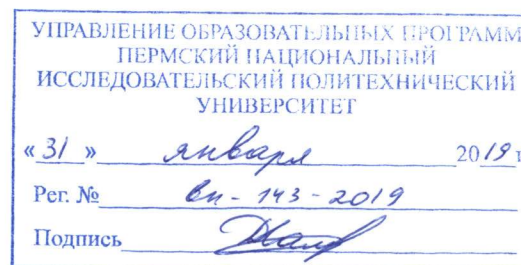 УПРАВЛЕНИЕ ОБРАЗОВАТЕЛЬНЫХ ПРОГРАММ
ПЕРМСКИЙ НАЦИОНАЛЬНЫЙ
ИССЛЕДОВАТЕЛЬСКИЙ ПОЛИТЕХНИЧЕСКИЙ
УНИВЕРСИТЕТ
«31» января 2019 г
Рег. № вн-143-2019
Подпись